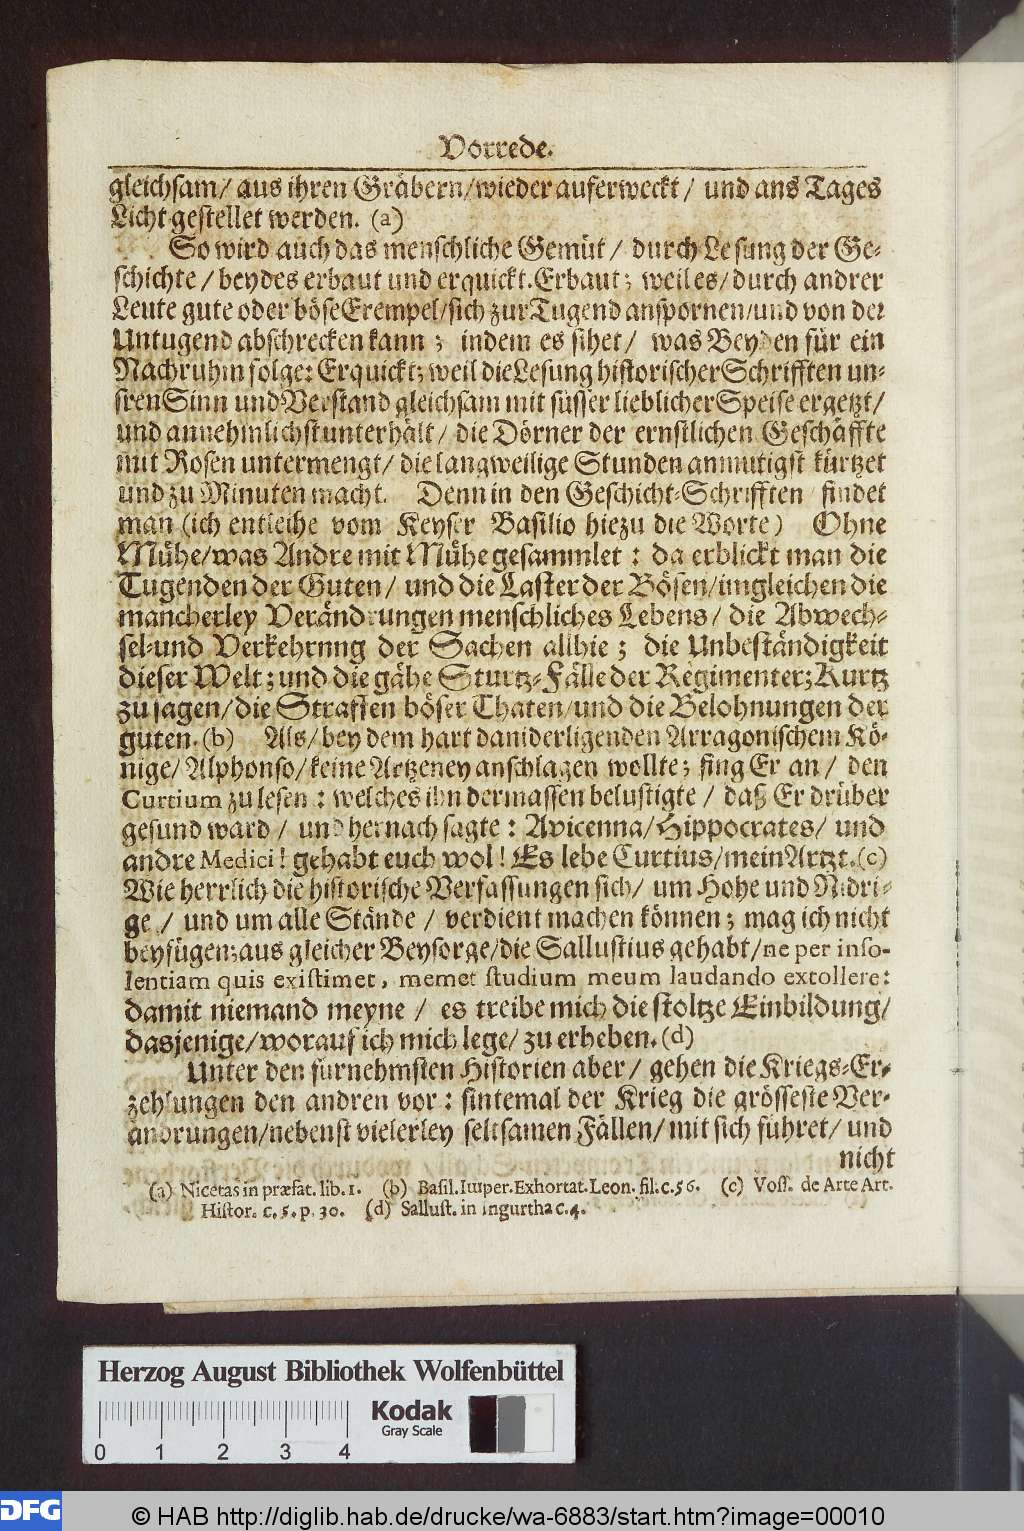 Vorrede.
gleichsam/ aus ihren Gräbern/wieder auferweckt/ und ans Tages
Licht gestellet werden. (a)
So wird auch das menschliche Gemüt/ durch Lesung der Ge-
schichte/ beydes erbaut und erquickt. Erbaut; weil es/ durch andrer
Leute gute oder böse Exempel/sich zur Tugend anspornen/und von der
Untugend abschrecken kann; indem es sihet/ was Beyden für ein
Nachruhm folge: Erquickt; weil die Lesung historischer Schrifften un-
sren Sinn und Verstand gleichsam mit süsser lieblicher Speise ergetzt/
und annehmlichst unterhält/ die Dörner der ernstlichen Geschäffte
mit Rosen untermengt/ die langweilige Stunden anmutigst kürtzet
und zu Minuten macht. Denn in den Geschicht-Schrifften findet
man (ich entleihe vom Keyser Basilio hiezu die Worte) Ohne
Mühe/was Andre mit Mühe gesammlet: da erblickt man die
Tugenden der Guten/ und die Laster der Bösen/imgleichen die
mancherley Verändrungen menschliches Lebens/ die Abwech-
sel-und Verkehrnng der Sachen allhie; die Unbeständigkeit
dieser Welt; und die gähe Sturtz-Fälle der Regimenter; Kurtz
zu sagen/die Straffen böser Thaten/und die Belohnungen der
guten. (b) Als/bey dem hart daniderligenden Arragonischem Kö-
nige/ Alphonso/keine Artzeney anschlagen wollte; fing Er an/ den
Curtium zu lesen: welches ihn dermassen belustigte/ daß Er drüber
gesund ward/ und hernach sagte: Avicenna/Hippocrates/ und
andre Medici! gehabt euch wol! Es lebe Curtius/mein Artzt. (c)
Wie herrlich die historische Verfassungen sich/ um Hohe und Nidri-
ge/ und um alle Stände/ verdient machen können; mag ich nicht
beyfügen; aus gleicher Beysorge/die Sallustius gehabt/ne per inso-
lentiam quis existimet, memet studium meum laudando extollere:
damit niemand meyne/ es treibe mich die stoltze Einbildung/
dasjenige/worauf ich mich lege/ zu erheben. (d)
Unter den fürnehmsten Historien aber/ gehen die Kriegs-Er-
zehlungen den andren vor: sintemal der Krieg die grösseste Ver-
ändrungen/nebenst vielerley seltsamen Fällen/ mit sich führet/ und
nicht
(a) Nicetas in præfat. lib. 1. (b) Basil. Imper. Exhortat. Leon. fil. c. 56. (c) Voss. de Arte Art.
Histor. c. 5. p. 30. (d) Sallust. in Ingurtha c. 4.
Herzog August Bibliothek Wolfenbüttel
0 1 2 3 4
Kodak
Gray Scale
DFG
© HAB http://diglib.hab.de/drucke/wa-6883/start.htm?image=00010